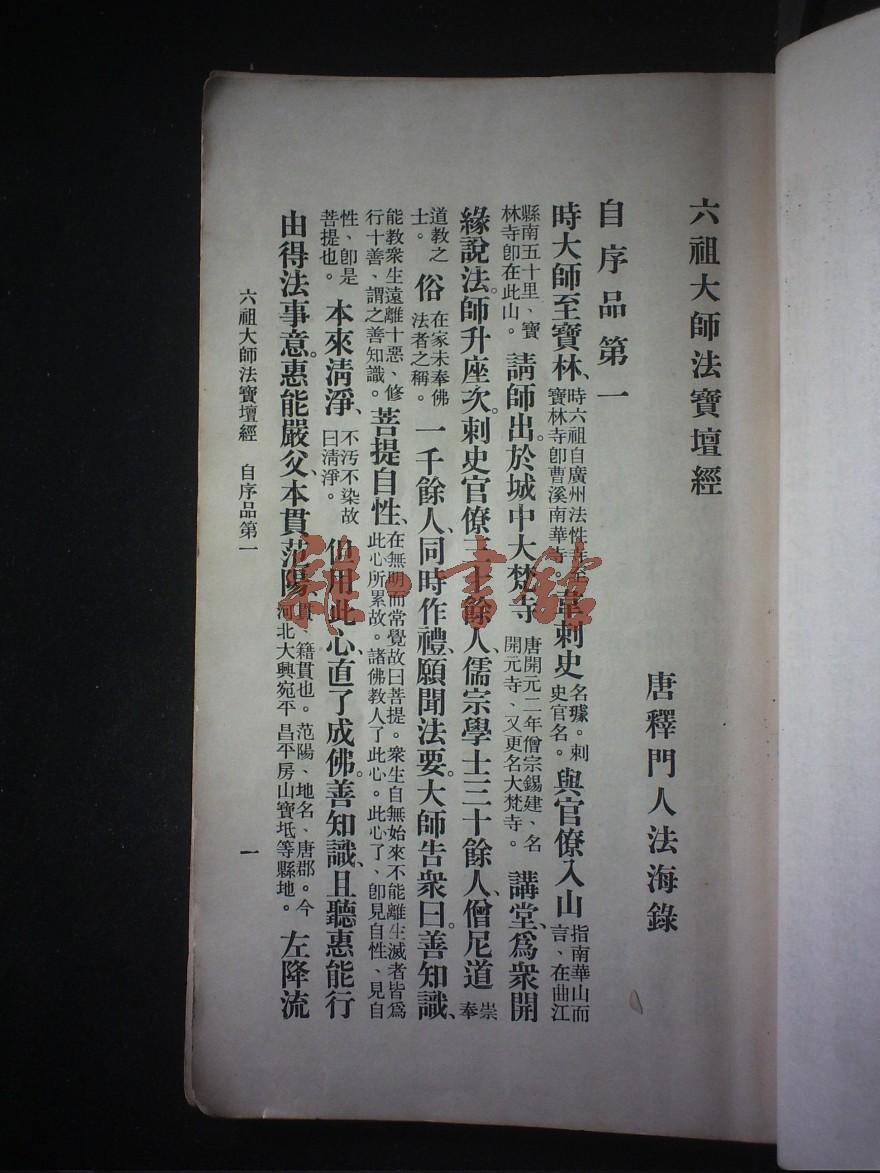 六祖大師法寶壇經
唐釋門人法海錄
自序品第一
時大師至寶林、時六祖自廣州法性寺至寶林寺卽曹溪南華寺。韋刺史名璩。刺史官名。與官僚入山指南華山而言、在曲江
縣南五十里、寶林寺卽在此山。請師出。於城中大梵寺唐開元二年僧宗錫建、名開元寺、又更名大梵寺。講堂、爲衆開
緣說法。師升座次。刺史官僚三十餘人、儒宗學士三十餘人、僧尼道崇奉
道教之士。俗在家未奉佛法者之稱。一千餘人、同時作禮、願聞法要。大師告衆曰。善知識、
能教衆生遠離十惡、修行十善、謂之善知識。菩提自性、在無明而常覺故曰菩提。衆生自無始來不能離生滅者皆爲此心所累故。諸佛教人了此心。此心了、卽見自性、見自
性、卽是菩提也。本來淸淨、不汚不染故曰淸淨。但用此心、直了成佛。善知識、且聽惠能行
由得法事意。惠能嚴父、本貫范陽、貫、籍貫也。范陽、地名、唐郡。今河北大興宛平昌平房山寶坻等縣地。左降流
六祖大師法寶壇經 自序品第一 一